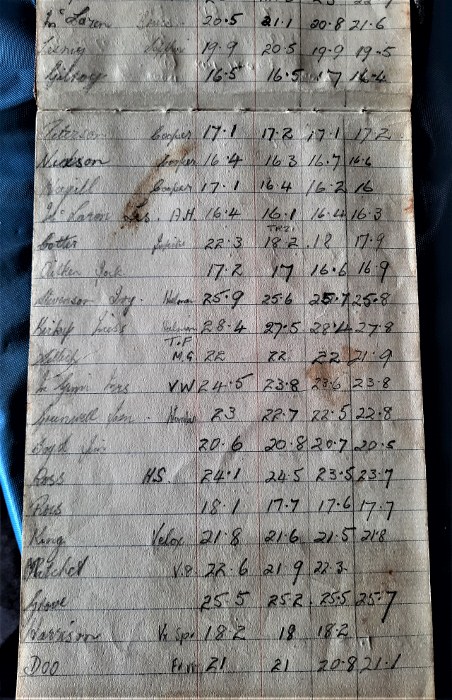 McLaren 20.5 21.1 20.8 21.6
19.9 20.5 19.9 19.5
Gilroy 16.5 16.5 17 16.4
Peterson Cooper 17.1 17.2 17.1 17.2
Nickson Cooper 16.4 16.3 16.7 16.6
Cooper 17.1 16.4 16.2 16
McLaren Les. A.H. 16.4 16.1 16.4 16.3
TR2
Cotter 22.3 18.2 .18 17.9
Aitken Jock 17.2 17 16.6 16.9
Stevenson Holman 25.9 25.6 25.7 25.8
28.4 27.5 28.4 27.8
T.F
M.G 22 22 22 21.9
V.W 24.5 23.8 23.6 23.8
23 22.7 22.5 22.8
20.6 20.8 20.7 20.5
Ross H.S. 24.1 24.5 23.5 23.7
Ross 18.1 17.7 17.6 17.7
King Velox 21.8 21.6 21.5 21.8
Mitchel V.8 22.6 21.9 22.3
25.5 25.2 25.5 25.7
Harrison 18.2 18 18.2
Doo 21 21 20.8 21.1